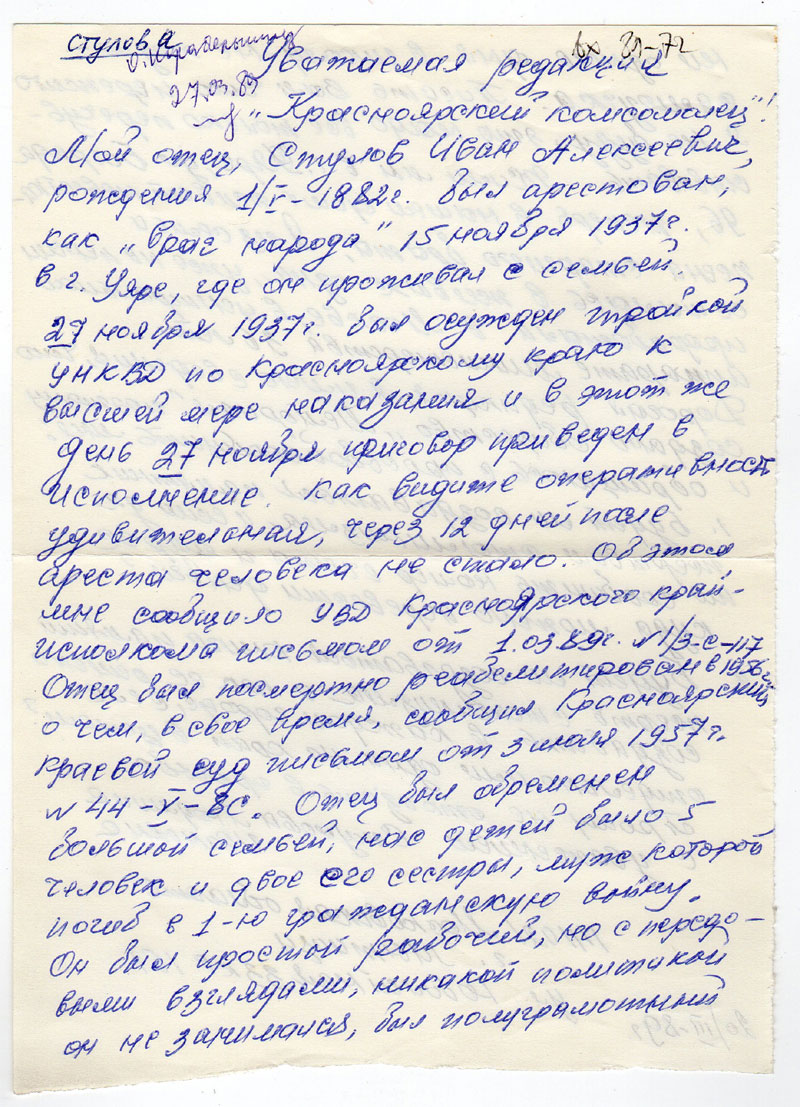 Стулов а
вх 89-72
27.03.89
Уважаемая редакция
"Красноярский комсомолец"!
Мой отец, Стулов Иван Алексеевич,
рождения 1/V-1882г. был арестован,
как "враг народа" 15 ноября 1937г.
в г. Уяре, где он проживал с семьей.
27 ноября 1937г. был осужден тройкой
УНКВД по Красноярскому краю к
высшей мере наказания и в этот же
день 27 ноября приговор приведен в
исполнение. Как видите оперативность
удивительная, через 12 дней после
ареста человека не стало. Об этом,
мне сообщило УВД Красноярского край-
исполкома письмом от 1.03.89г. №1/3-С-117
Отец был посмертно реабелитирован в 1956г.
о чем, в свое время, сообщил Красноярский
краевой суд письмом от 3 июля 1957г.
№ 44-У-8С. Отец был обременен
большой семьей, нас детей было 5
человек и двое его сестры, муж которой
погиб в 1-ю гражданскую войну.
Он был простый рабочий, но с передо-
выми взглядами, никакой политикой
он не занимался, был полуграмотный